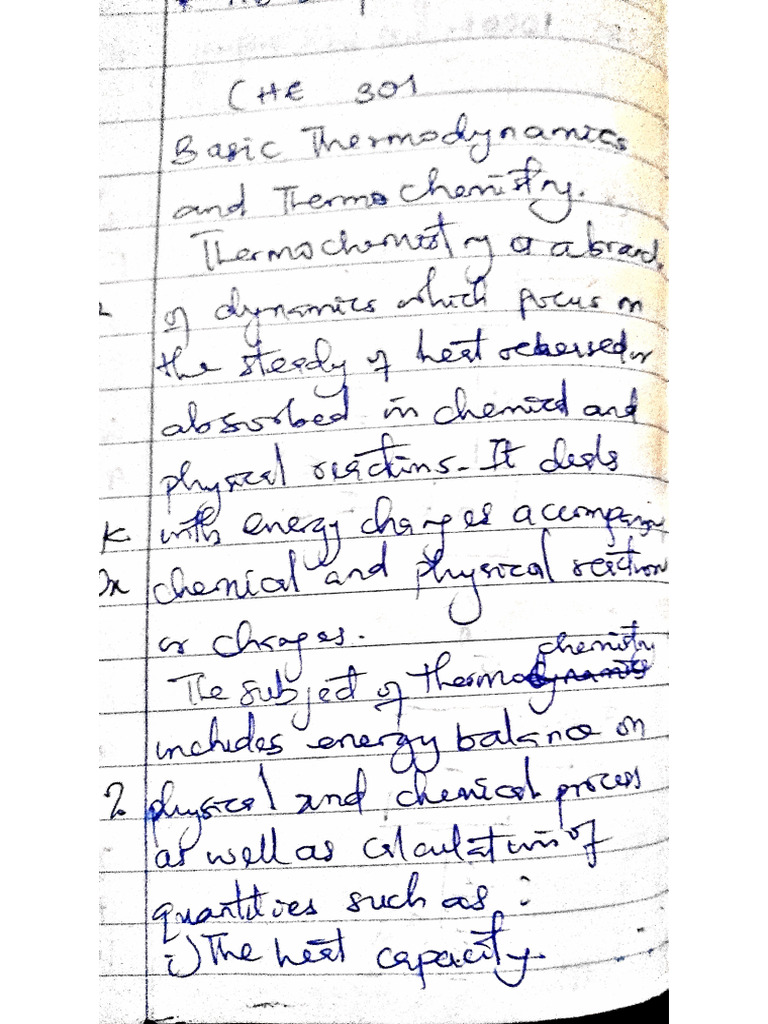 CHE 301
Basic Thermodynamics
and Thermo chemistry.
Thermochemistry is a branch
of dynamics which focus on
the study of heat released or
absorbed in chemical and
physical reactions. It deals
with energy changes accompanying
chemical and physical reaction
or changes.
chemistry
The subject of thermodynamics
includes energy balance on
physical and chemical process
as well as calculation of
quantities such as :
i) The heat capacity.